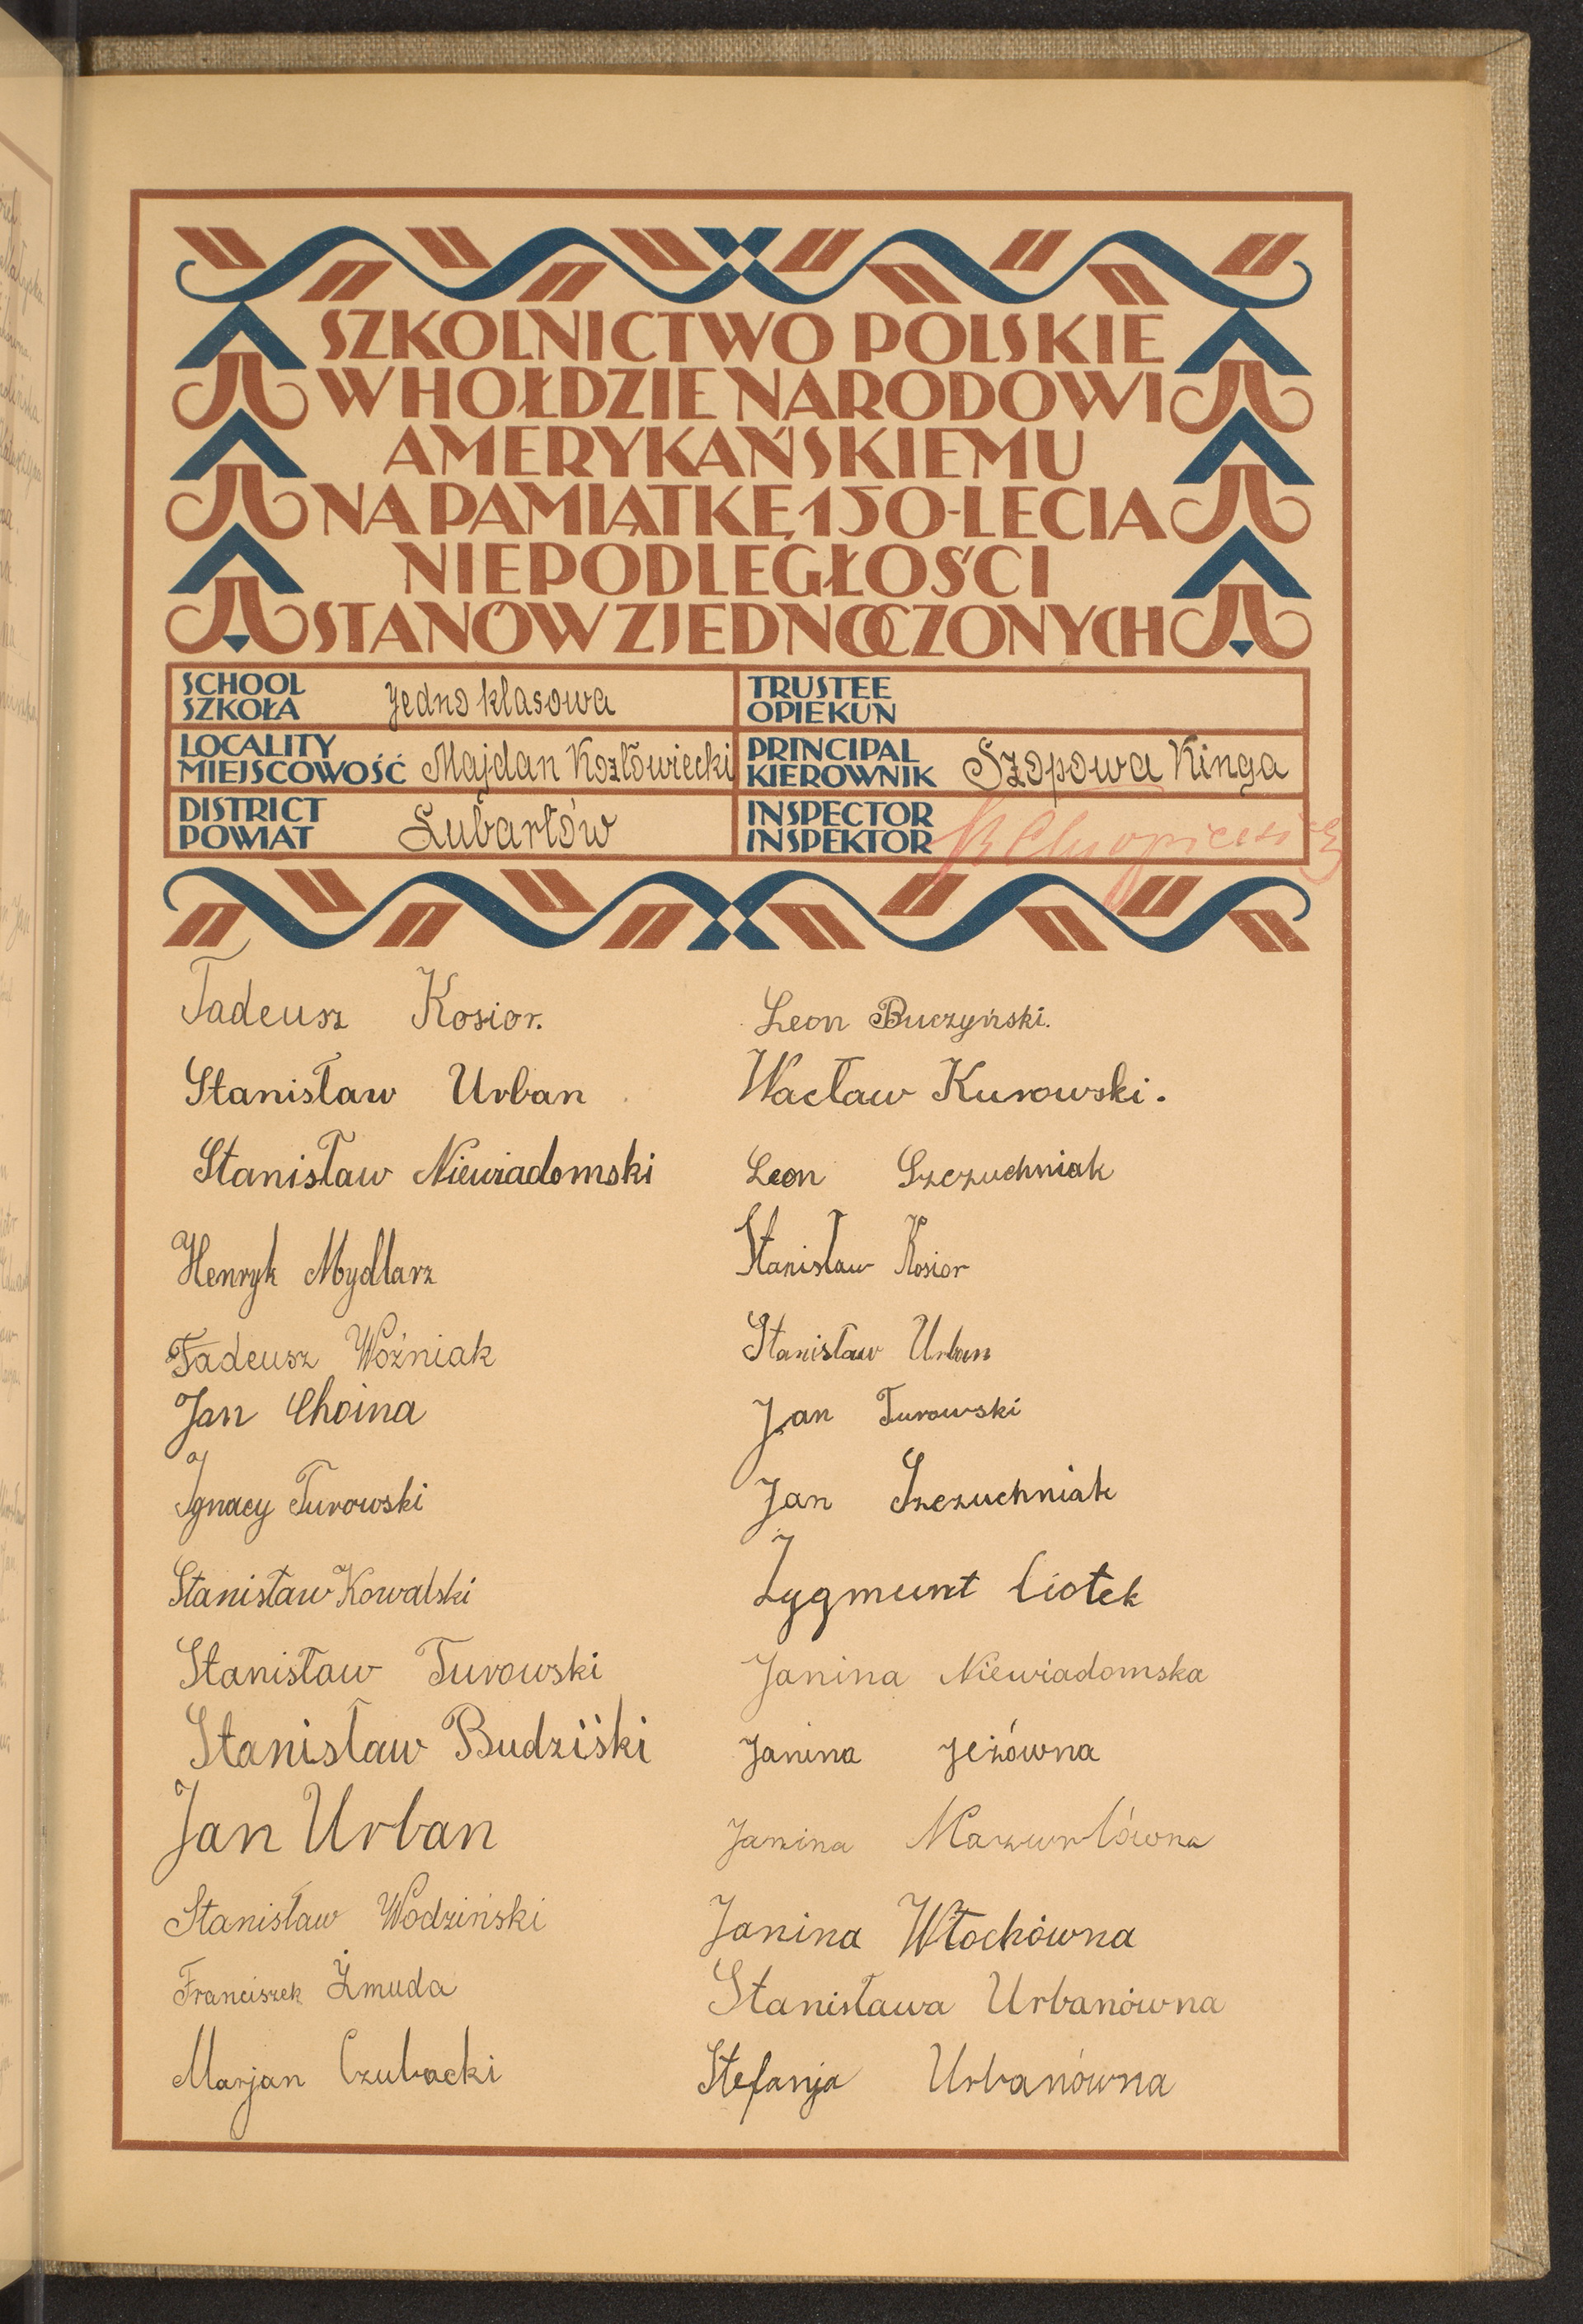 SZKOLNICTWO POLSKIE
W HOŁDZIE NARODOWI
AMERYKAŃSKIEMU
NA PAMIĄTKĘ 150-LECIA
NIEPODLEGŁOŚCI
STANÓW ZJEDNOCZONYCH
SCHOOL
SZKOŁA
jedno klasowa
TRUSTEE
OPIEKUN
LOCALITY
MIEJSCOWOŚĆ
Majdan Kozłowiecki
PRINCIPAL
KIEROWNIK
Szopowa Kinga
DISTRICT
POWIAT
Lubartów
INSPECTOR
INSPEKTOR
Tadeusz Kosior.
Stanisław Urban
Stanisław Niewiadomski
Henryk Mydlarz
Tadeusz Woźniak
Jan Choina
Ignacy Turowski
Stanisław Kowalski
Stanisław Turowski
Stanisław Budziśki
Jan Urban
Stanisław Wodziński
Franciszek Żmuda
Marjan Czubacki
Leon Buczyński.
Wacław Kurowski.
Leon Szczuchniak
Stanisław Kosior
Stanisław Urban
Jan Turowski
Jan Szczuchniak
Zygmunt Ciołek
Janina Niewiadomska
Janina Jeżówna
Janina Mazurkówna
Janina Włochówna
Stanisława Urbanówna
Stefanja Urbanówna